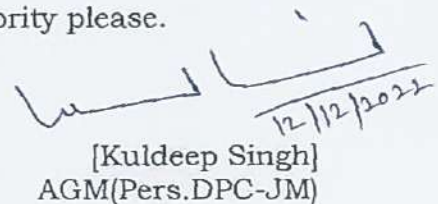 ority please.
12/12/2022
[Kuldeep Singh]
AGM(Pers.DPC-JM)